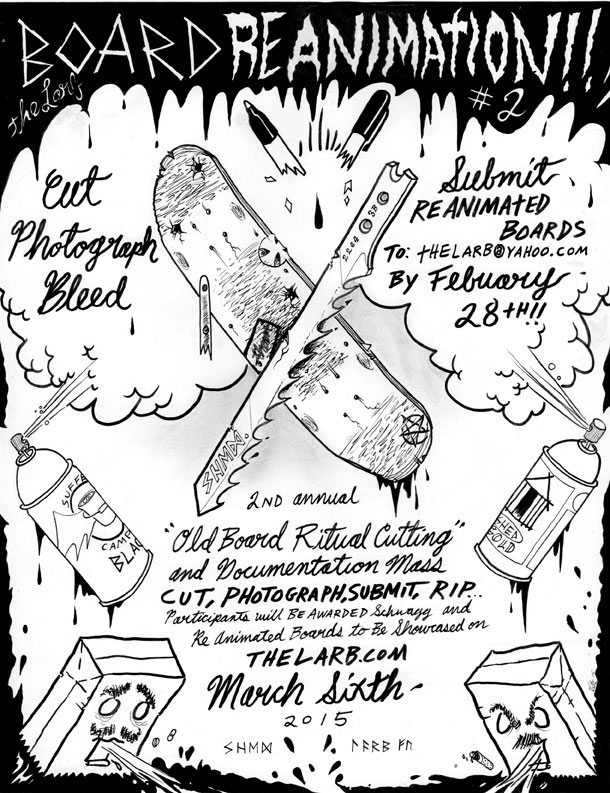 BOARD REANIMATION!!
the Larb's
#2
Cut
Photograph
Bleed
Submit
REANIMATED
BOARDS
To: THELARB@YAHOO.COM
By Febuary
28TH!!
SUFFER
CAMP
BLA
SHED
GOLD
2ND annual
"Old Board Ritual Cutting"
and Documentation Mass
CUT, PHOTOGRAPH, SUBMIT, RIP...
Participants will BE AWARDED Schwagg and
Re Animated Boards to Be Showcased on
THELARB.COM
March Sixth~
2015